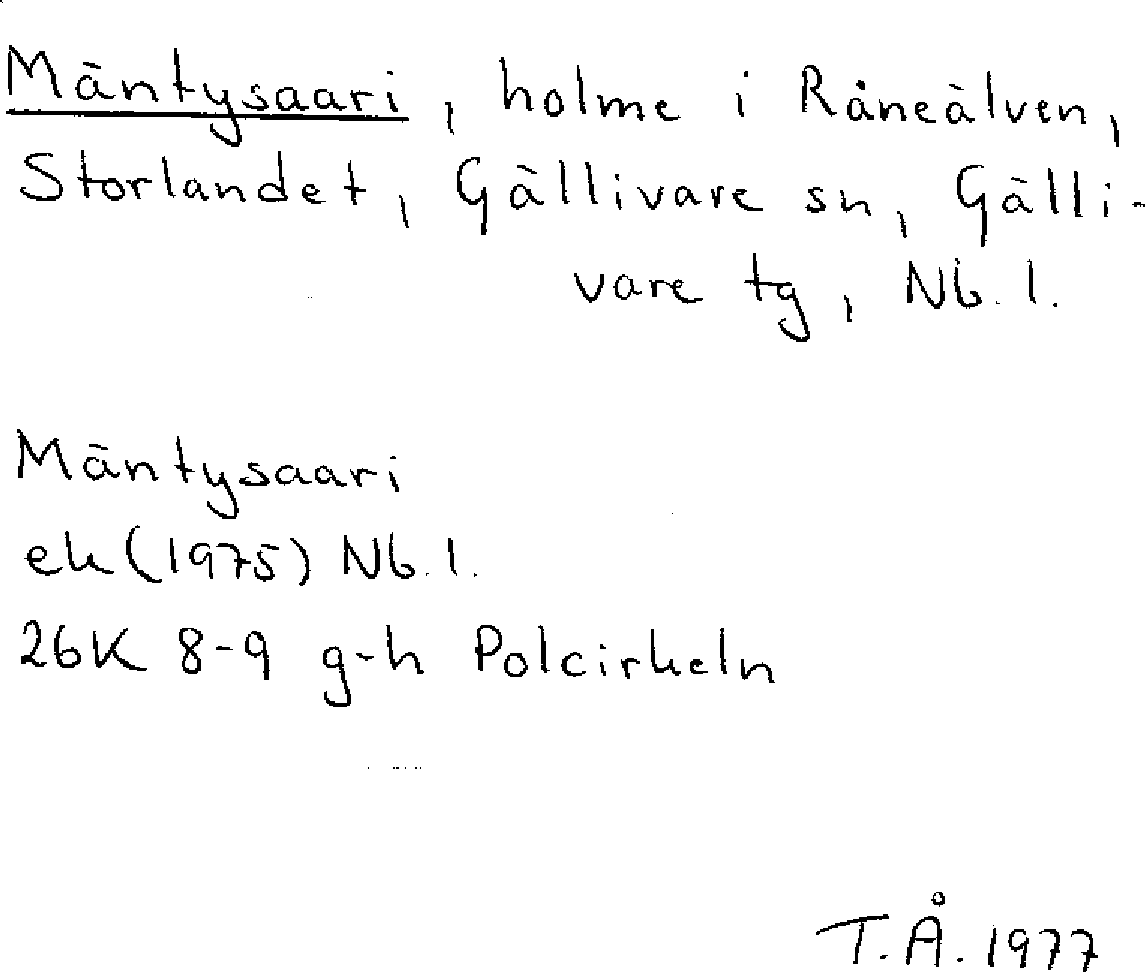 Mäntysaari, holme i Råneälven,
Storlandet, Gällivare sn, Gälli-
vare tg, Nb. l.
Mäntysaari
ek (1975) Nb. l.
26K 8-9 g-h Polcirkeln
T.Å. 1977